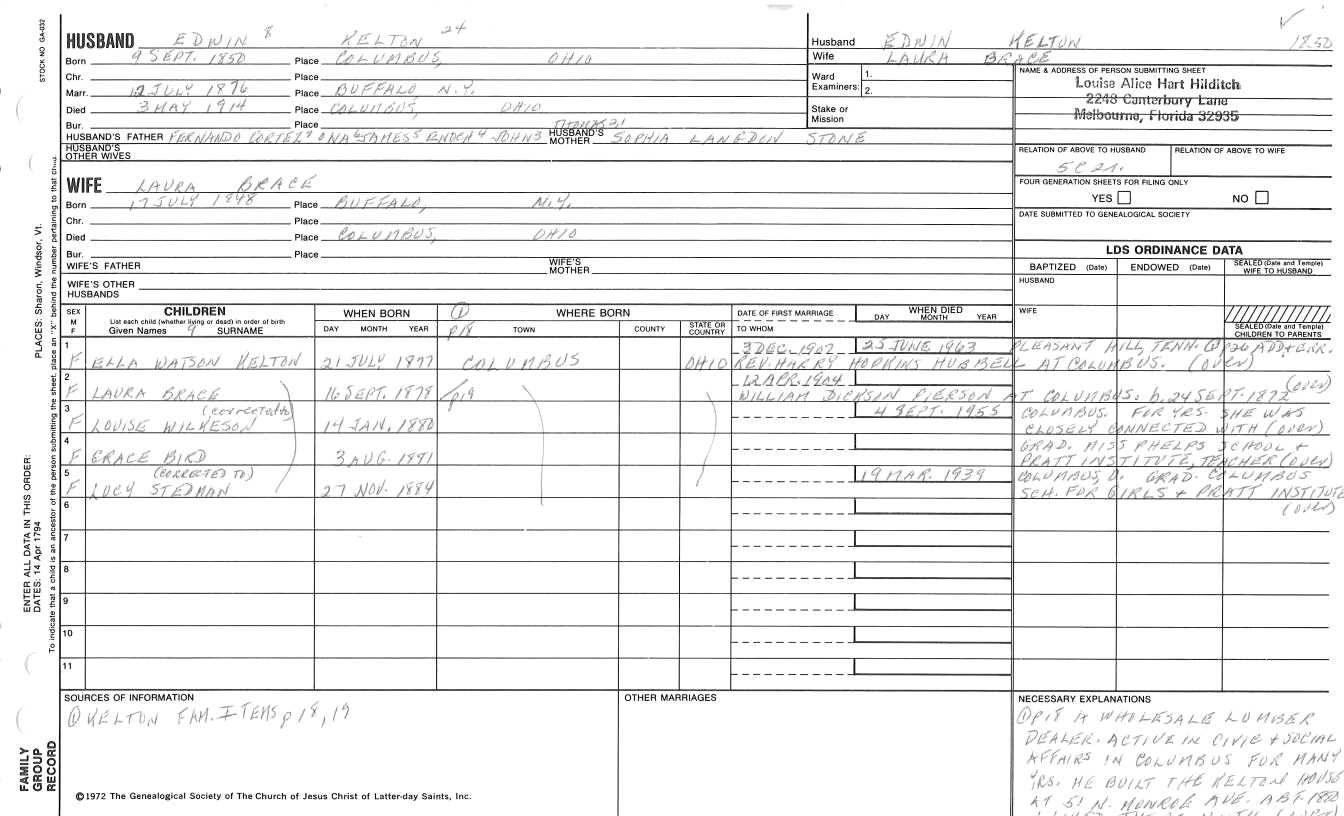 STOCK NO GA-032
HUSBAND EDWIN 8 KELTON 24
Born 9 SEPT. 1850 Place COLUMBUS, OHIO
Chr. Place
Marr. 12 JULY 1876 Place BUFFALO, N.Y.
Died 3 MAY 1914 Place COLUMBUS, OHIO
Bur. Place
HUSBAND'S FATHER FERNANDO CORTEZ 7 ONA 6 JAMES 5 ENOCH 4 JOHN 3 THOMAS 2,1 HUSBAND'S MOTHER SOPHIA LANGDON STONE
HUSBAND'S OTHER WIVES
WIFE LAURA BRACE
Born 17 JULY 1848 Place BUFFALO, N.Y.
Chr. Place
Died Place COLUMBUS, OHIO
Bur. Place
WIFE'S FATHER WIFE'S MOTHER
WIFE'S OTHER HUSBANDS
Husband EDWIN KELTON 1850
Wife LAURA BRACE
Ward Examiners: 1. 2.
Stake or Mission
NAME & ADDRESS OF PERSON SUBMITTING SHEET
Louise Alice Hart Hilditch
2249 Canterbury Lane
Melbourne, Florida 32935
RELATION OF ABOVE TO HUSBAND RELATION OF ABOVE TO WIFE
5C 2r.
FOUR GENERATION SHEETS FOR FILING ONLY
YES NO
DATE SUBMITTED TO GENEALOGICAL SOCIETY
LDS ORDINANCE DATA
BAPTIZED (Date) ENDOWED (Date) SEALED (Date and Temple) WIFE TO HUSBAND
HUSBAND
WIFE
SEALED (Date and Temple) CHILDREN TO PARENTS
SEX M F
CHILDREN
List each child (whether living or dead) in order of birth
Given Names 9 SURNAME
WHEN BORN
DAY MONTH YEAR
① p18
WHERE BORN
TOWN COUNTY STATE OR COUNTRY
DATE OF FIRST MARRIAGE
TO WHOM
WHEN DIED
DAY MONTH YEAR
1 3 DEC. 1907 25 JUNE 1963 PLEASANT HILL, TENN. ① p26 ADD + ERR.
F ELLA WATSON KELTON 21 JULY 1877 COLUMBUS OHIO REV. HARRY HOPKINS HUBBELL AT COLUMBUS. (OVER)
2 12 APR. 1904 (over)
F LAURA BRACE 16 SEPT. 1878 p19 WILLIAM DICKSIN PIERSON AT COLUMBUS. b. 24 SEPT. 1872
3 (corrected to) 4 SEPT. 1955 COLUMBUS. FOR YRS. SHE WAS
F LOUISE WILKESON 14 JAN. 1880 CLOSELY CONNECTED WITH (over)
4 GRAD. MISS PHELPS SCHOOL +
F GRACE BIRD 3 AUG. 1881 PRATT INSTITUTE, TEACHER (over)
5 (CORRECTED TO) 19 MAR. 1939 COLUMBUS, O. GRAD. COLUMBUS
F LUCY STEDMAN 27 NOV. 1884 SCH. FOR GIRLS + PRATT INSTITUTE
6 (over)
7
8
9
10
11
SOURCES OF INFORMATION
① KELTON FAM. ITEMS p 18, 19
OTHER MARRIAGES
NECESSARY EXPLANATIONS
① p18 A WHOLESALE LUMBER
DEALER. ACTIVE IN CIVIC + SOCIAL
AFFAIRS IN COLUMBUS FOR MANY
YRS. HE BUILT THE KELTON HOUSE
AT 51 N. MONROE AVE. ABT. 1880
©1972 The Genealogical Society of The Church of Jesus Christ of Latter-day Saints, Inc.
PLACES: Sharon, Windsor, Vt.
ENTER ALL DATA IN THIS ORDER:
DATES: 14 Apr 1794
To indicate that a child is an ancestor of the person submitting the sheet, place an "X" behind the number pertaining to that child.
FAMILY
GROUP
RECORD